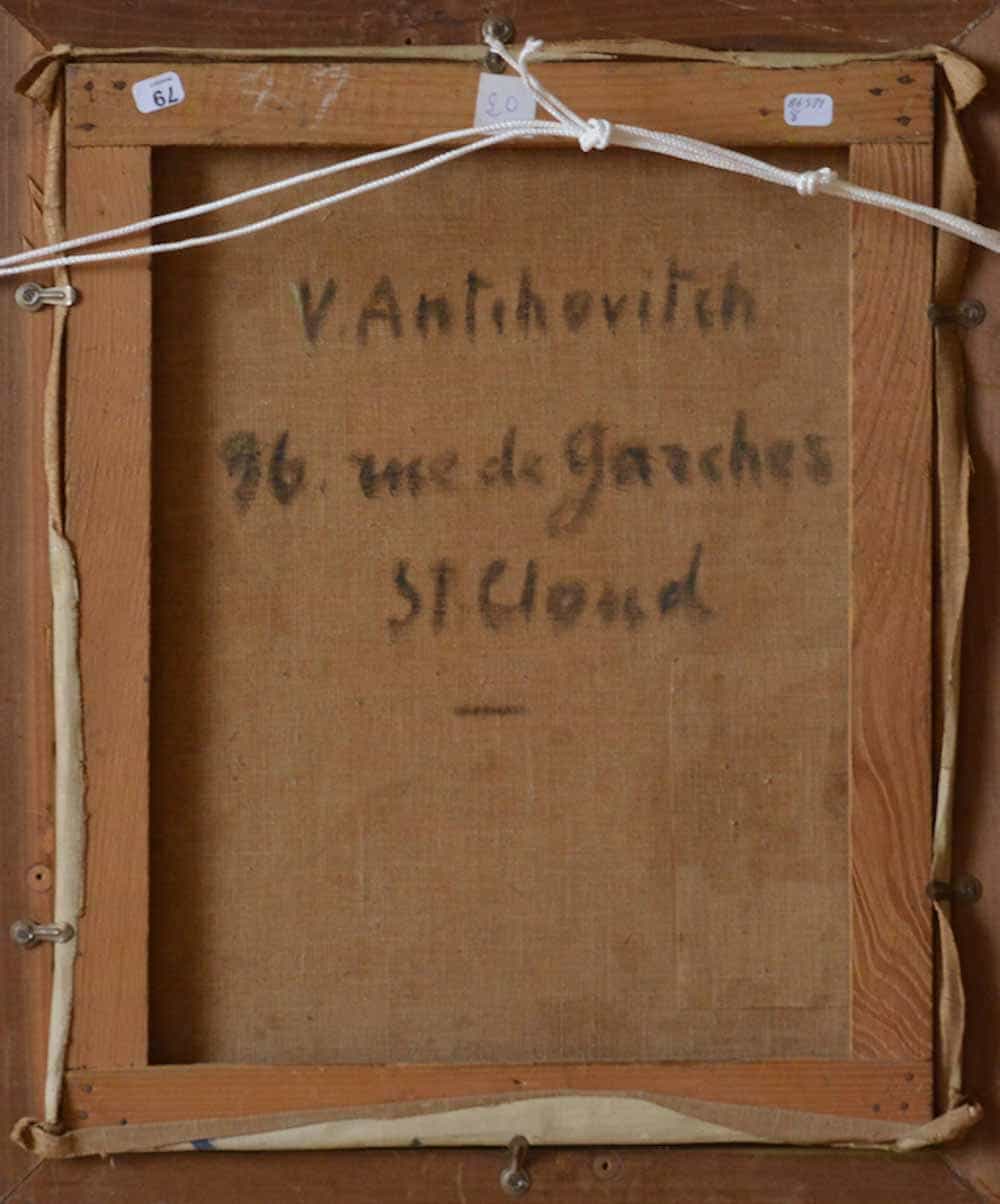 79
V. Antchovitch
96. rue de Garches
St. Cloud